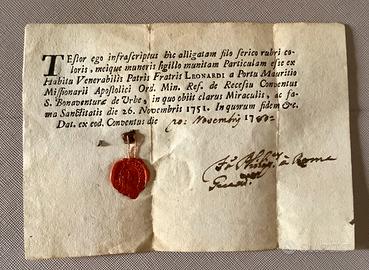 TEstor ego infrascriptus hic alligatam filo serico rubri co-
loris, meique muneris sigillo munitam Particulam esse ex
Habitu Venerabilis Patris Fratris LEONARDI a Portu Mauritio
Missionarii Apostolici Ord. Min. Ref. de Recessu Conventus
S. Bonaventuræ de Urbe, in quo obiit clarus Miraculis, ac fa-
ma Sanctitatis die 26. Novembris 1751. In quorum fidem &c.
Dat. ex eod. Conventus die 20: Novembris
à Roma